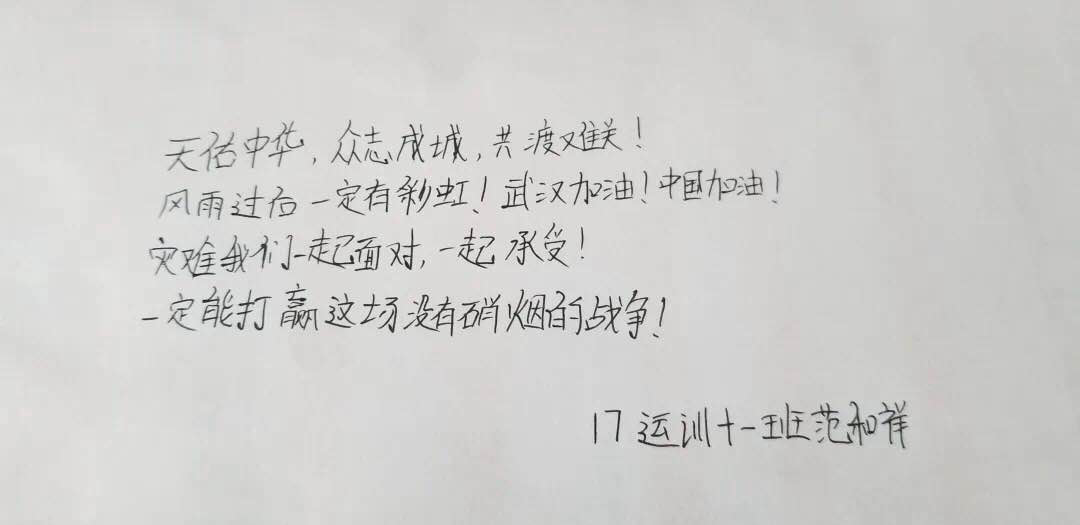 天佑中华,众志成城,共渡难关!
风雨过后一定有彩虹!武汉加油!中国加油!
灾难我们一起面对,一起承受!
一定能打赢这场没有硝烟的战争!
17运训十一班范和祥